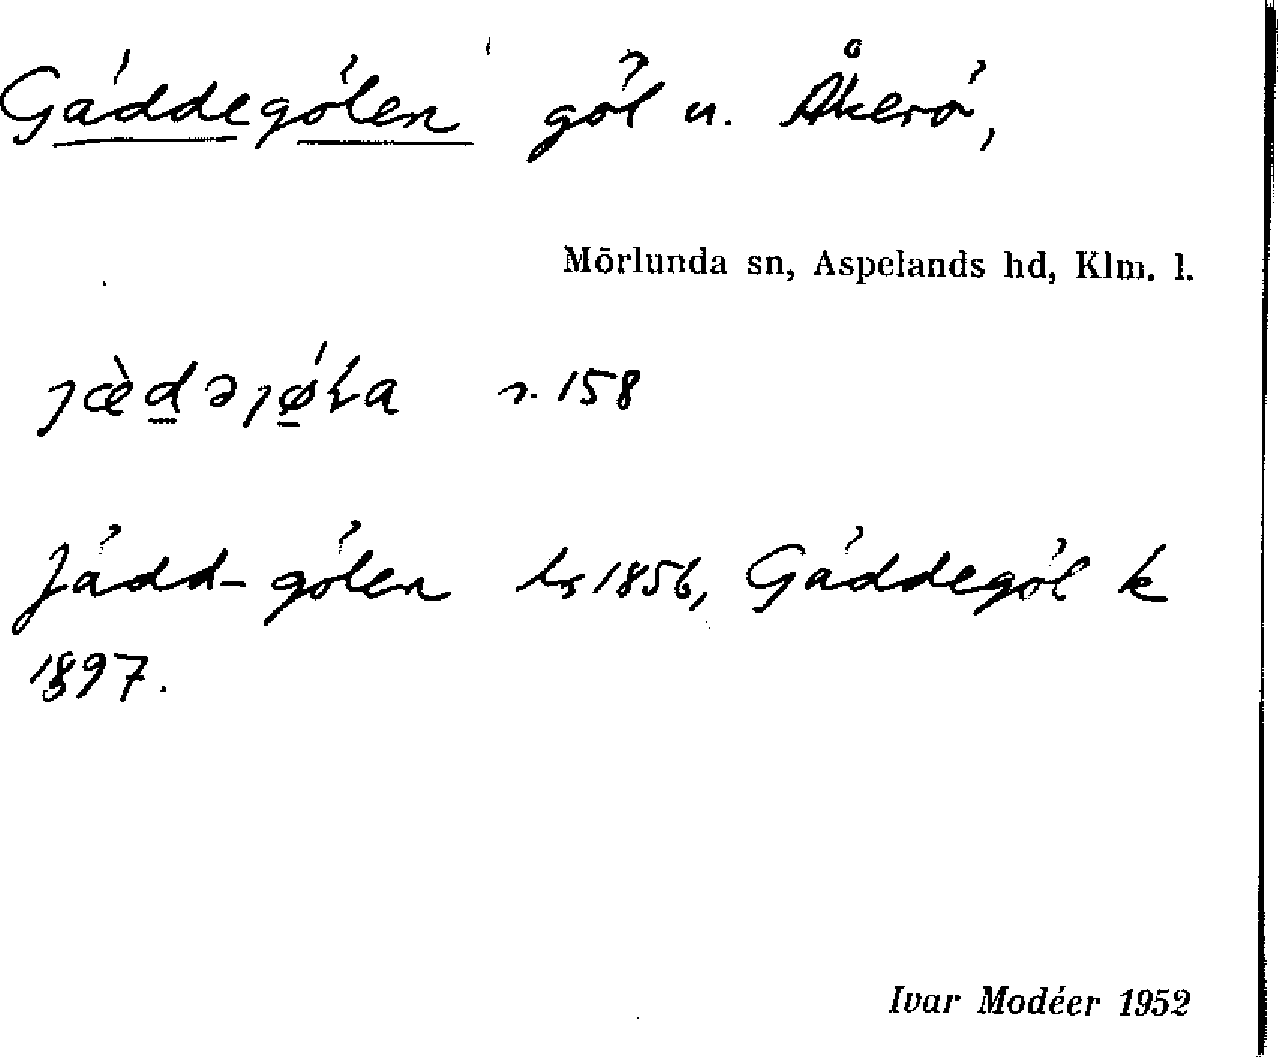 Gäddegölen göl u. Åkerö,
Mörlunda sn, Aspelands hd, Klm. l.
s. 158
Jädd-gölen hs 1856, Gäddegöl k
1897.
Ivar Modéer 1952